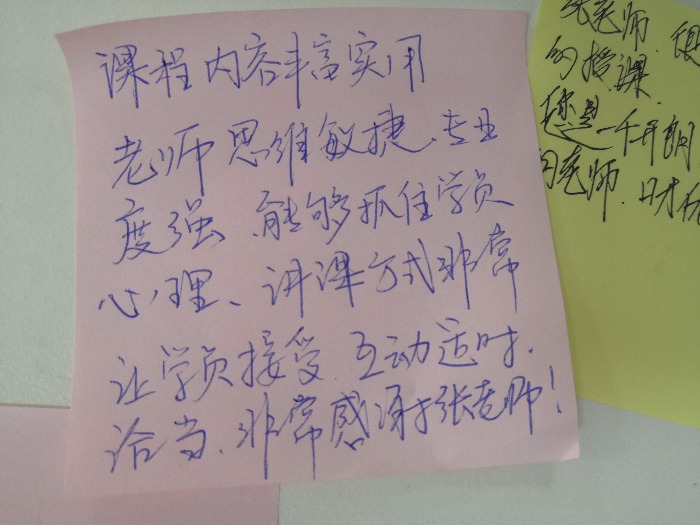 课程内容丰富实用
老师思维敏捷、专业
度强、能够抓住学员
心理、讲课方式非常
让学员接受、互动适时、
洽当、非常感谢张老师!
张老师、很
的授课
您是一个开朗
老师、口才